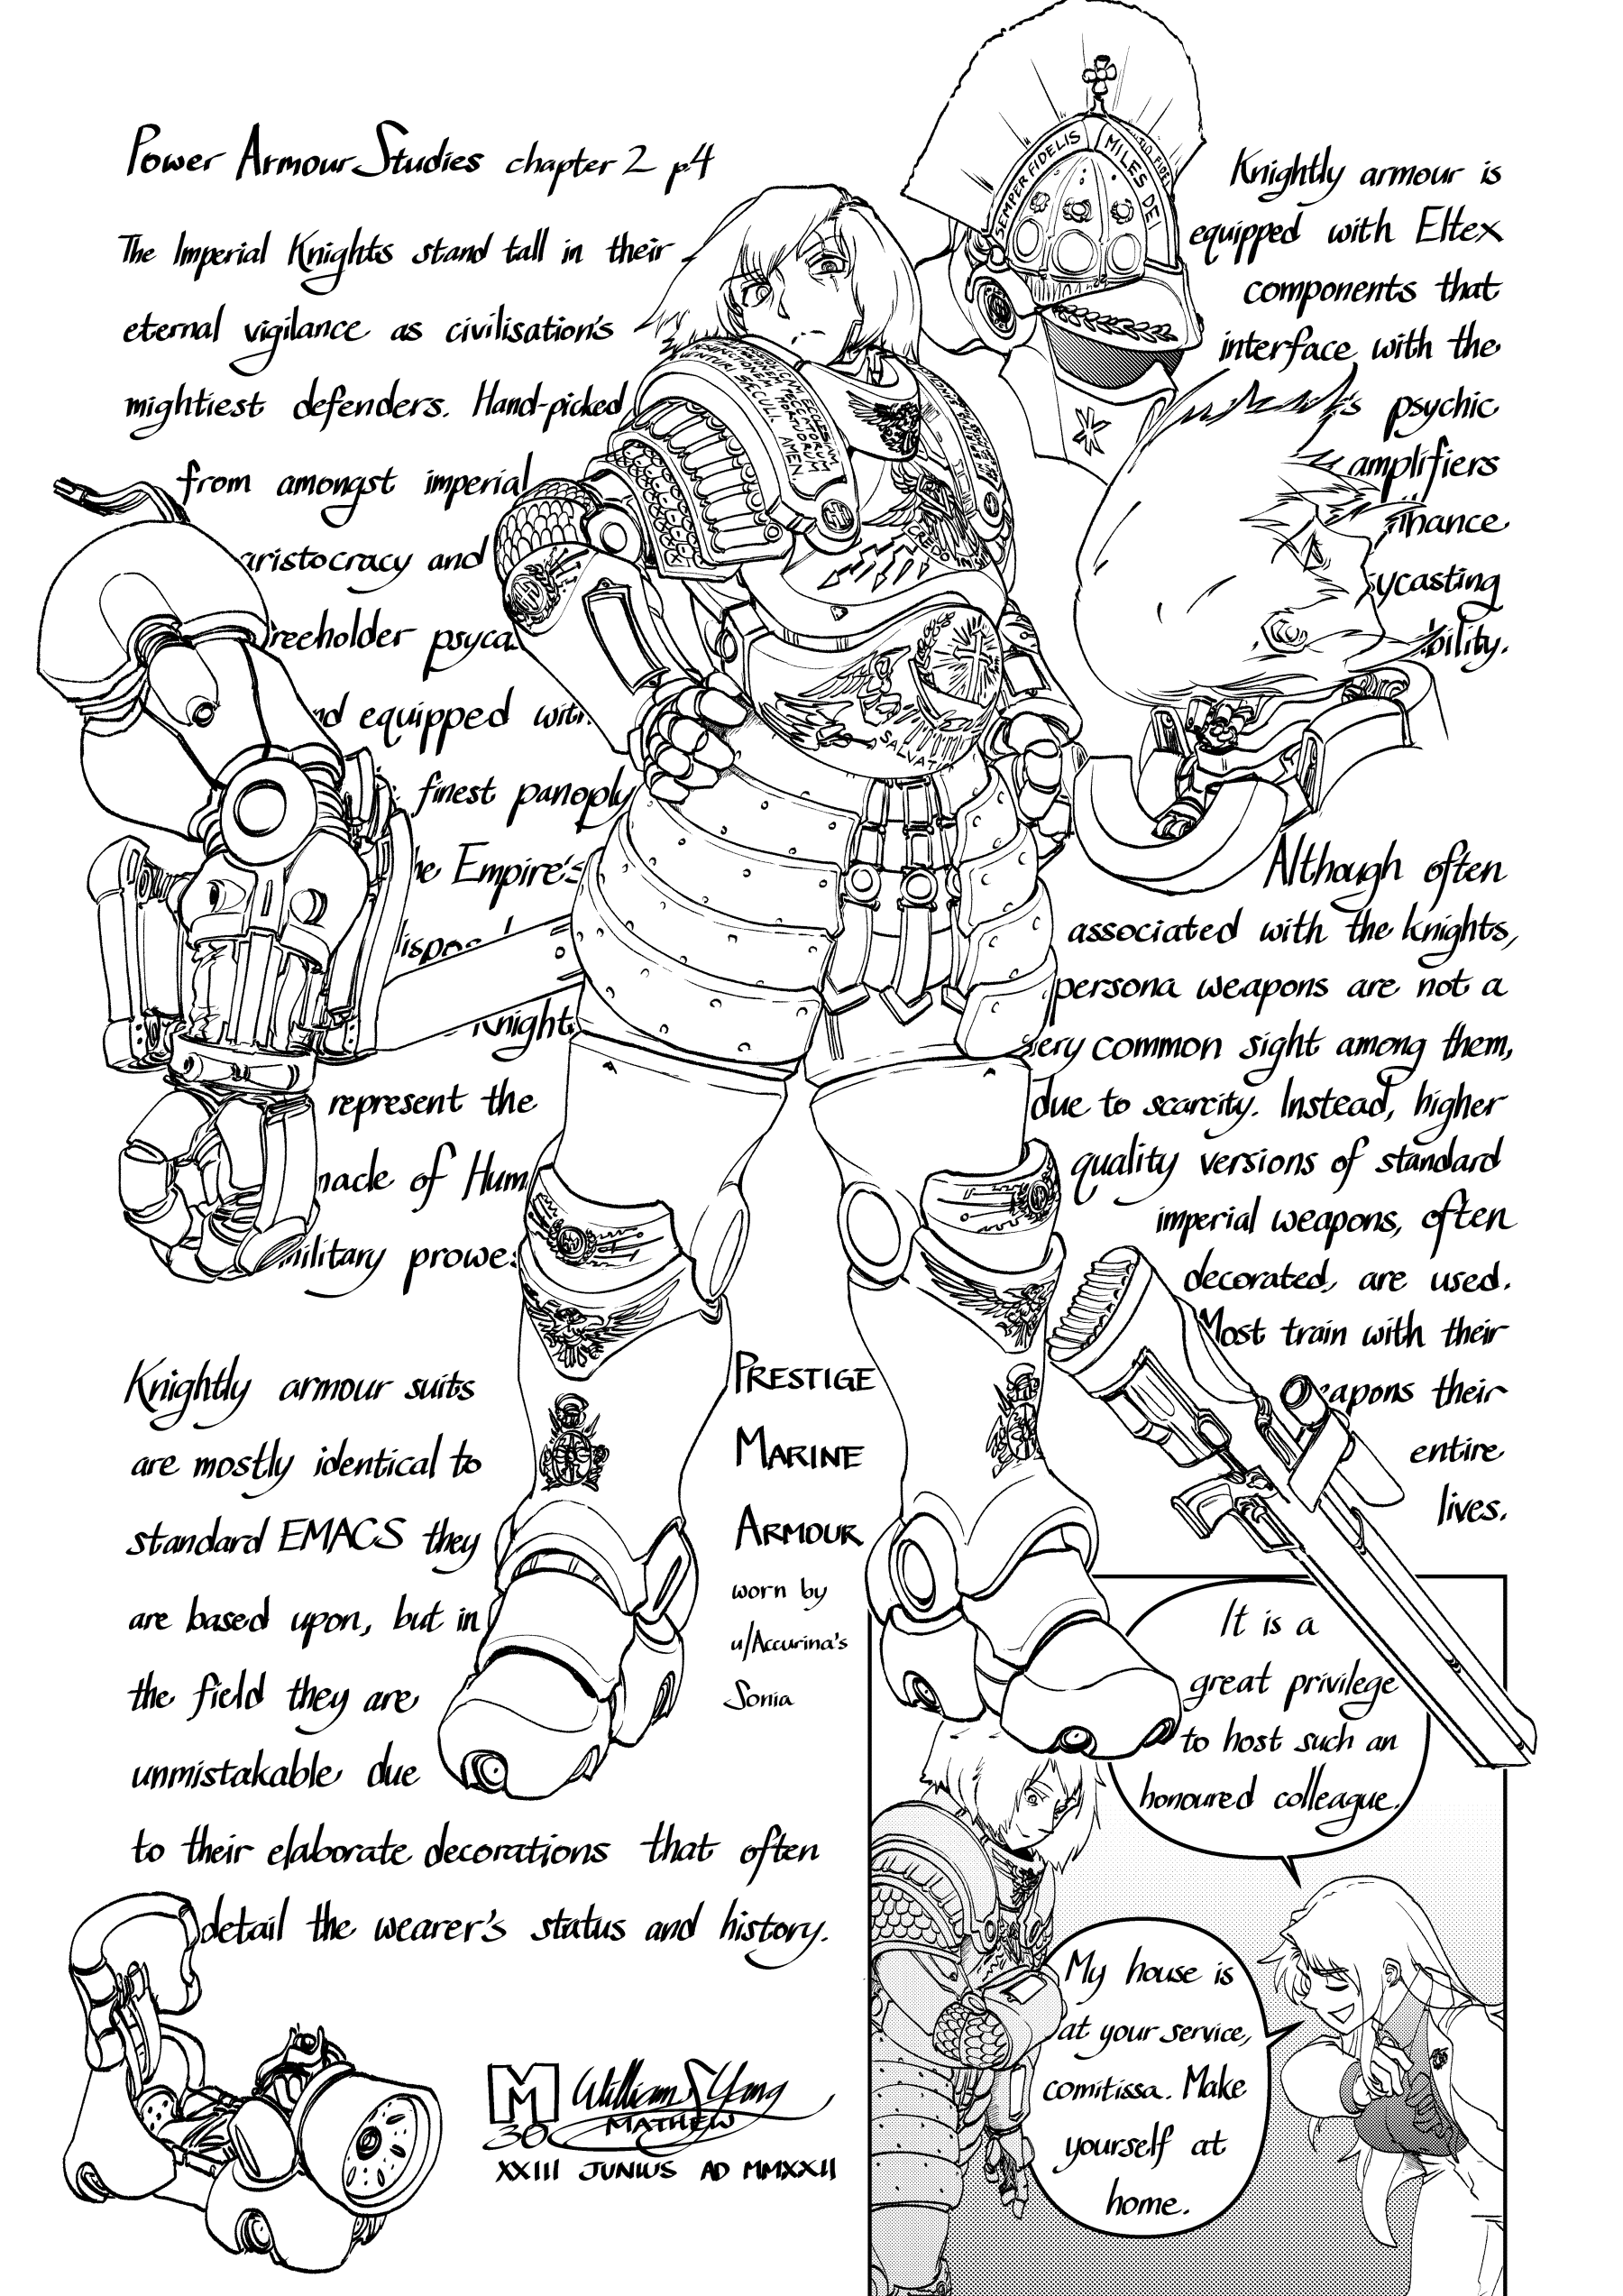 Power Armour Studies chapter 2 p4
The Imperial Knights stand tall in their
eternal vigilance as civilisation's
mightiest defenders. Hand-picked
from amongst imperial
aristocracy and
reeholder psyca
nd equipped with
finest panoply
he Empire's
Knight
represent the
nacle of Hum
military prowes
Knightly armour suits
are mostly identical to
standard EMACS they
are based upon, but in
the field they are
unmistakable due
to their elaborate decorations that often
detail the wearer's status and history.
PRESTIGE
MARINE
ARMOUR
worn by
u/Accurina's
Sonia
SEMPER FIDELIS
MILES DEI
PECCATORUM
MORTUORUM
VENTURI SECULI. AMEN.
CREDO IN
SALVATI
Knightly armour is
equipped with Eltex
components that
interface with the
psychic
amplifiers
hance
sycasting
bility.
Although often
associated with the knights,
persona weapons are not a
very common sight among them,
due to scarcity. Instead, higher
quality versions of standard
imperial weapons, often
decorated, are used.
Most train with their
eapons their
entire
lives.
It is a
great privilege
to host such an
honoured colleague.
My house is
at your service,
comitissa. Make
yourself at
home.
M William Yang
30 MATHEW
XXIII JUNIUS AD MMXXII